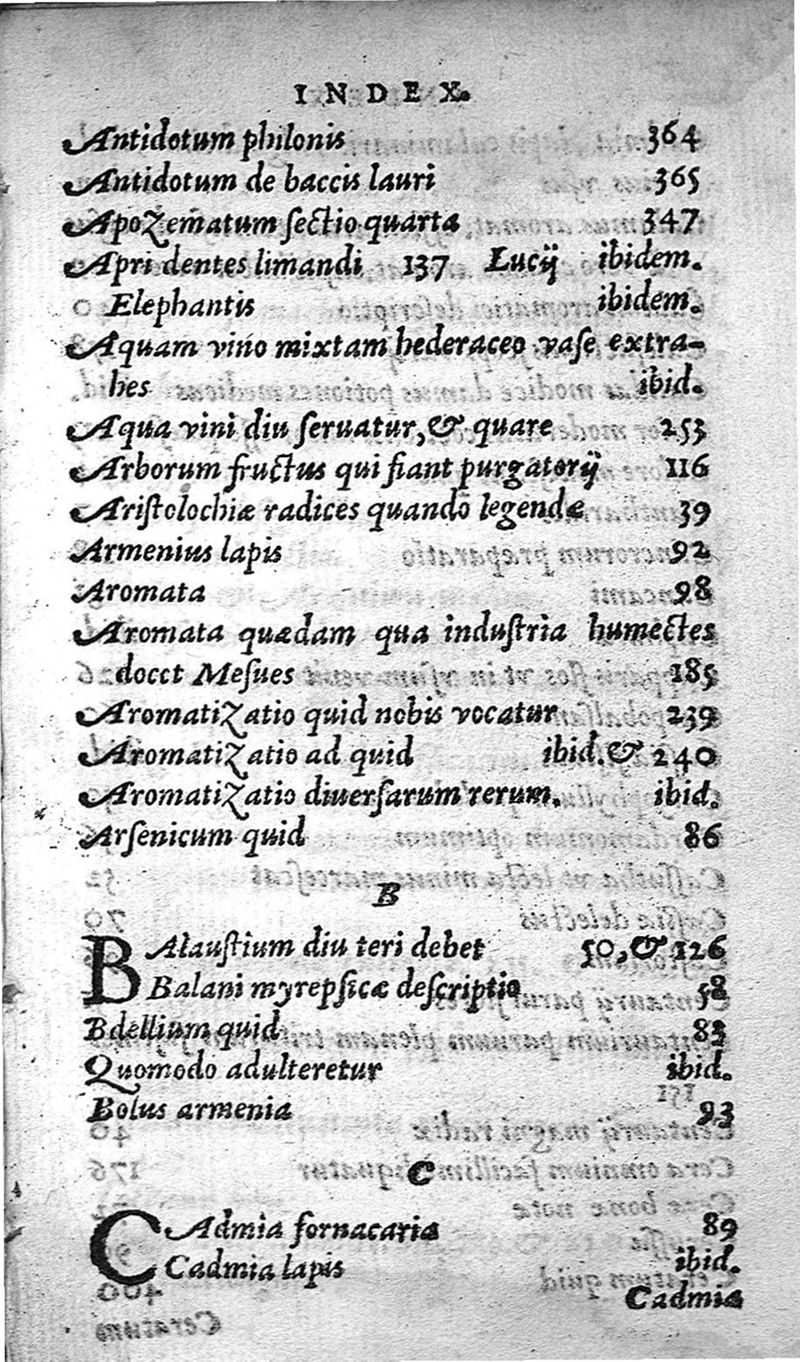 INDEX.
Antidotum philonis 364
Antidotum de baccis lauri 365
Apozematum sectio quarta 347
Apri dentes limandi 137 Lucij ibidem.
Elephantis ibidem.
Aquam vino mixtam hederaceo vase extra-
hes ibid.
Aqua vini diu seruatur, & quare 253
Arborum fructus qui fiant purgatorij 116
Aristolochiæ radices quando legendæ 39
Armenius lapis 92
Aromata 98
Aromata quædam qua industria humectes
docet Mesues 185
Aromatizatio quid nobis vocatur 239
Aromatizatio ad quid ibid. & 240
Aromatizatio diuersarum rerum. ibid.
Arsenicum quid 86
B
BAlaustium diu teri debet 50, & 126
Balani myrepsicæ descriptio 58
Bdellium quid 83
Quomodo adulteretur ibid.
Bolus armenia 93
C
CAdmia fornacaria 89
Cadmia lapis ibid.
Cadmia